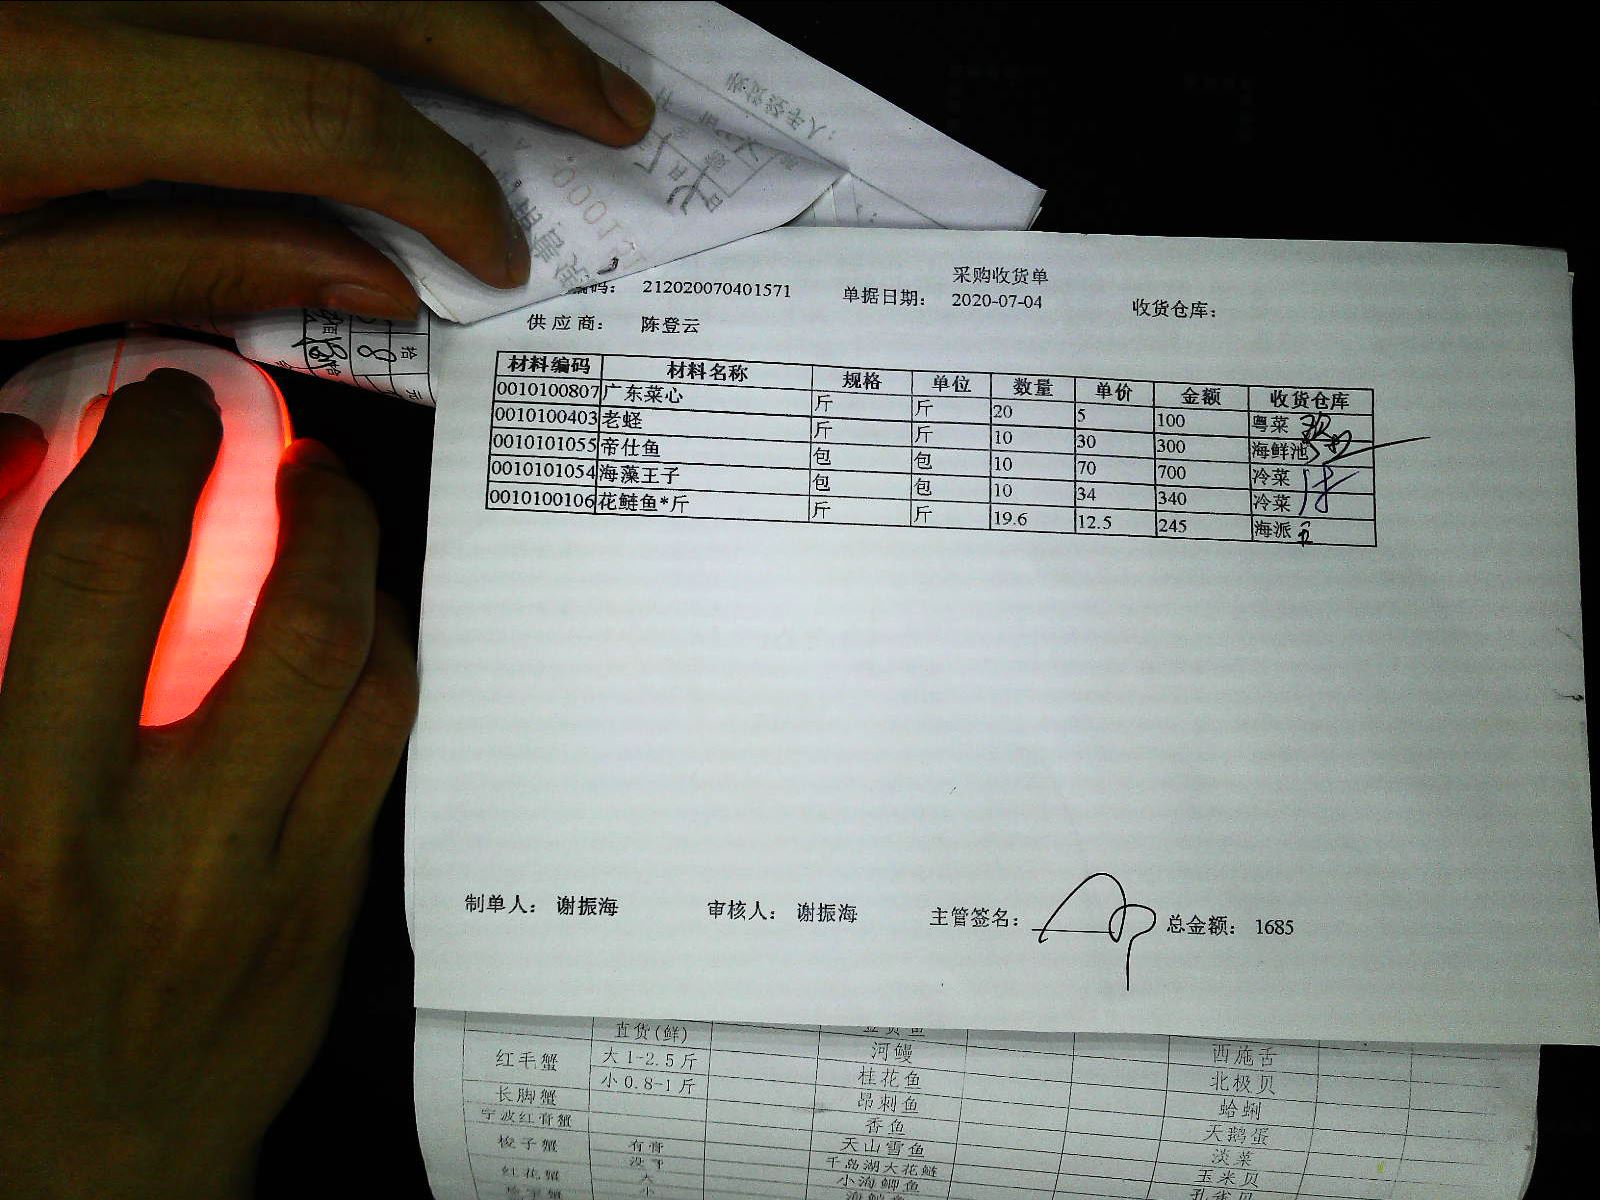 采购收货单
编码： 212020070401571 单据日期： 2020-07-04 收货仓库：
供应商： 陈登云
材料编码 材料名称 规格 单位 数量 单价 金额 收货仓库
0010100807 广东菜心 斤 斤 20 5 100 粤菜
0010100403 老蛏 斤 斤 10 30 300 海鲜池
0010101055 帝仕鱼 包 包 10 70 700 冷菜
0010101054 海藻王子 包 包 10 34 340 冷菜
0010100106 花鲢鱼*斤 斤 斤 19.6 12.5 245 海派
制单人： 谢振海 审核人： 谢振海 主管签名： 总金额： 1685
直货(鲜)
红毛蟹 大1-2.5斤 河鳗 西施舌
小0.8-1斤 桂花鱼 北极贝
长脚蟹 昂刺鱼 蛤蜊
宁波红膏蟹 香鱼 天鹅蛋
梭子蟹 有膏 天山雪鱼 淡菜
千岛湖大花鲢 玉米贝
红花蟹 大 小海鲫鱼
小